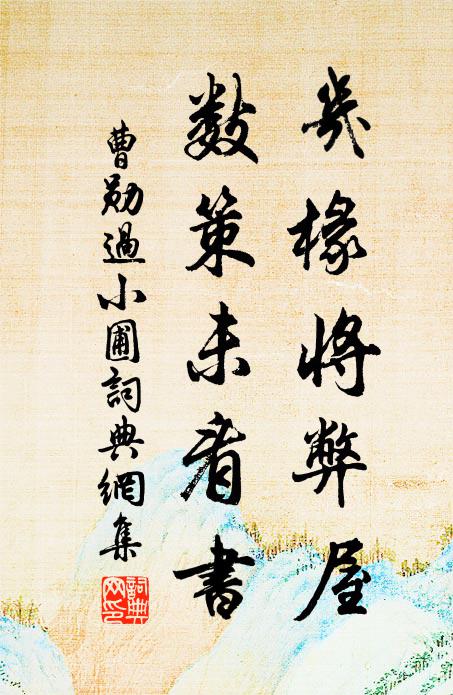 幾椽將弊屋
數策未看書
曹勛過小圃詞典網集
詞典网印